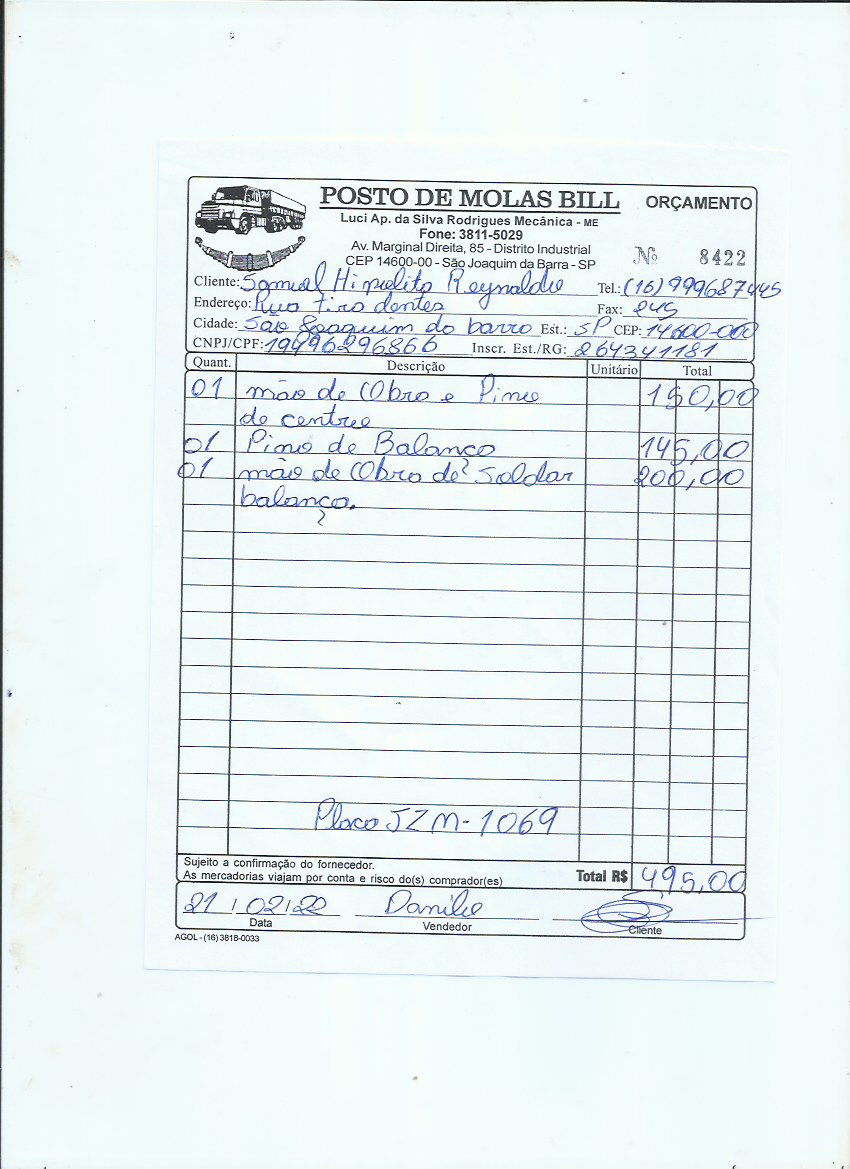 POSTO DE MOLAS BILL
ORÇAMENTO
Luci Ap. da Silva Rodrigues Mecânica - ME
Fone: 3811-5029
Av. Marginal Direita, 85 - Distrito Industrial
Nº 8422
CEP 14600-00 - São Joaquim da Barra - SP
Cliente: Samuel Hipolito Reynaldo Tel.: (16) 999687445
Endereço: Rua tiro dentes Fax: 245
Cidade: São Joaquim do barro Est.: SP CEP: 14600-000
CNPJ/CPF: 19496296866 Inscr. Est./RG: 264341181
Quant. Descrição Unitário Total
01 mão de Obro e Pino 150,00
de centro
01 Pino de Balanco 145,00
01 mão de Obro de Soldar 200,00
balanço.
Placo JZM-1069
Sujeito a confirmação do fornecedor.
As mercadorias viajam por conta e risco do(s) comprador(es) Total R$ 495,00
21/02/22 Danilo
Data Vendedor Cliente
AGOL - (16) 3818-0033